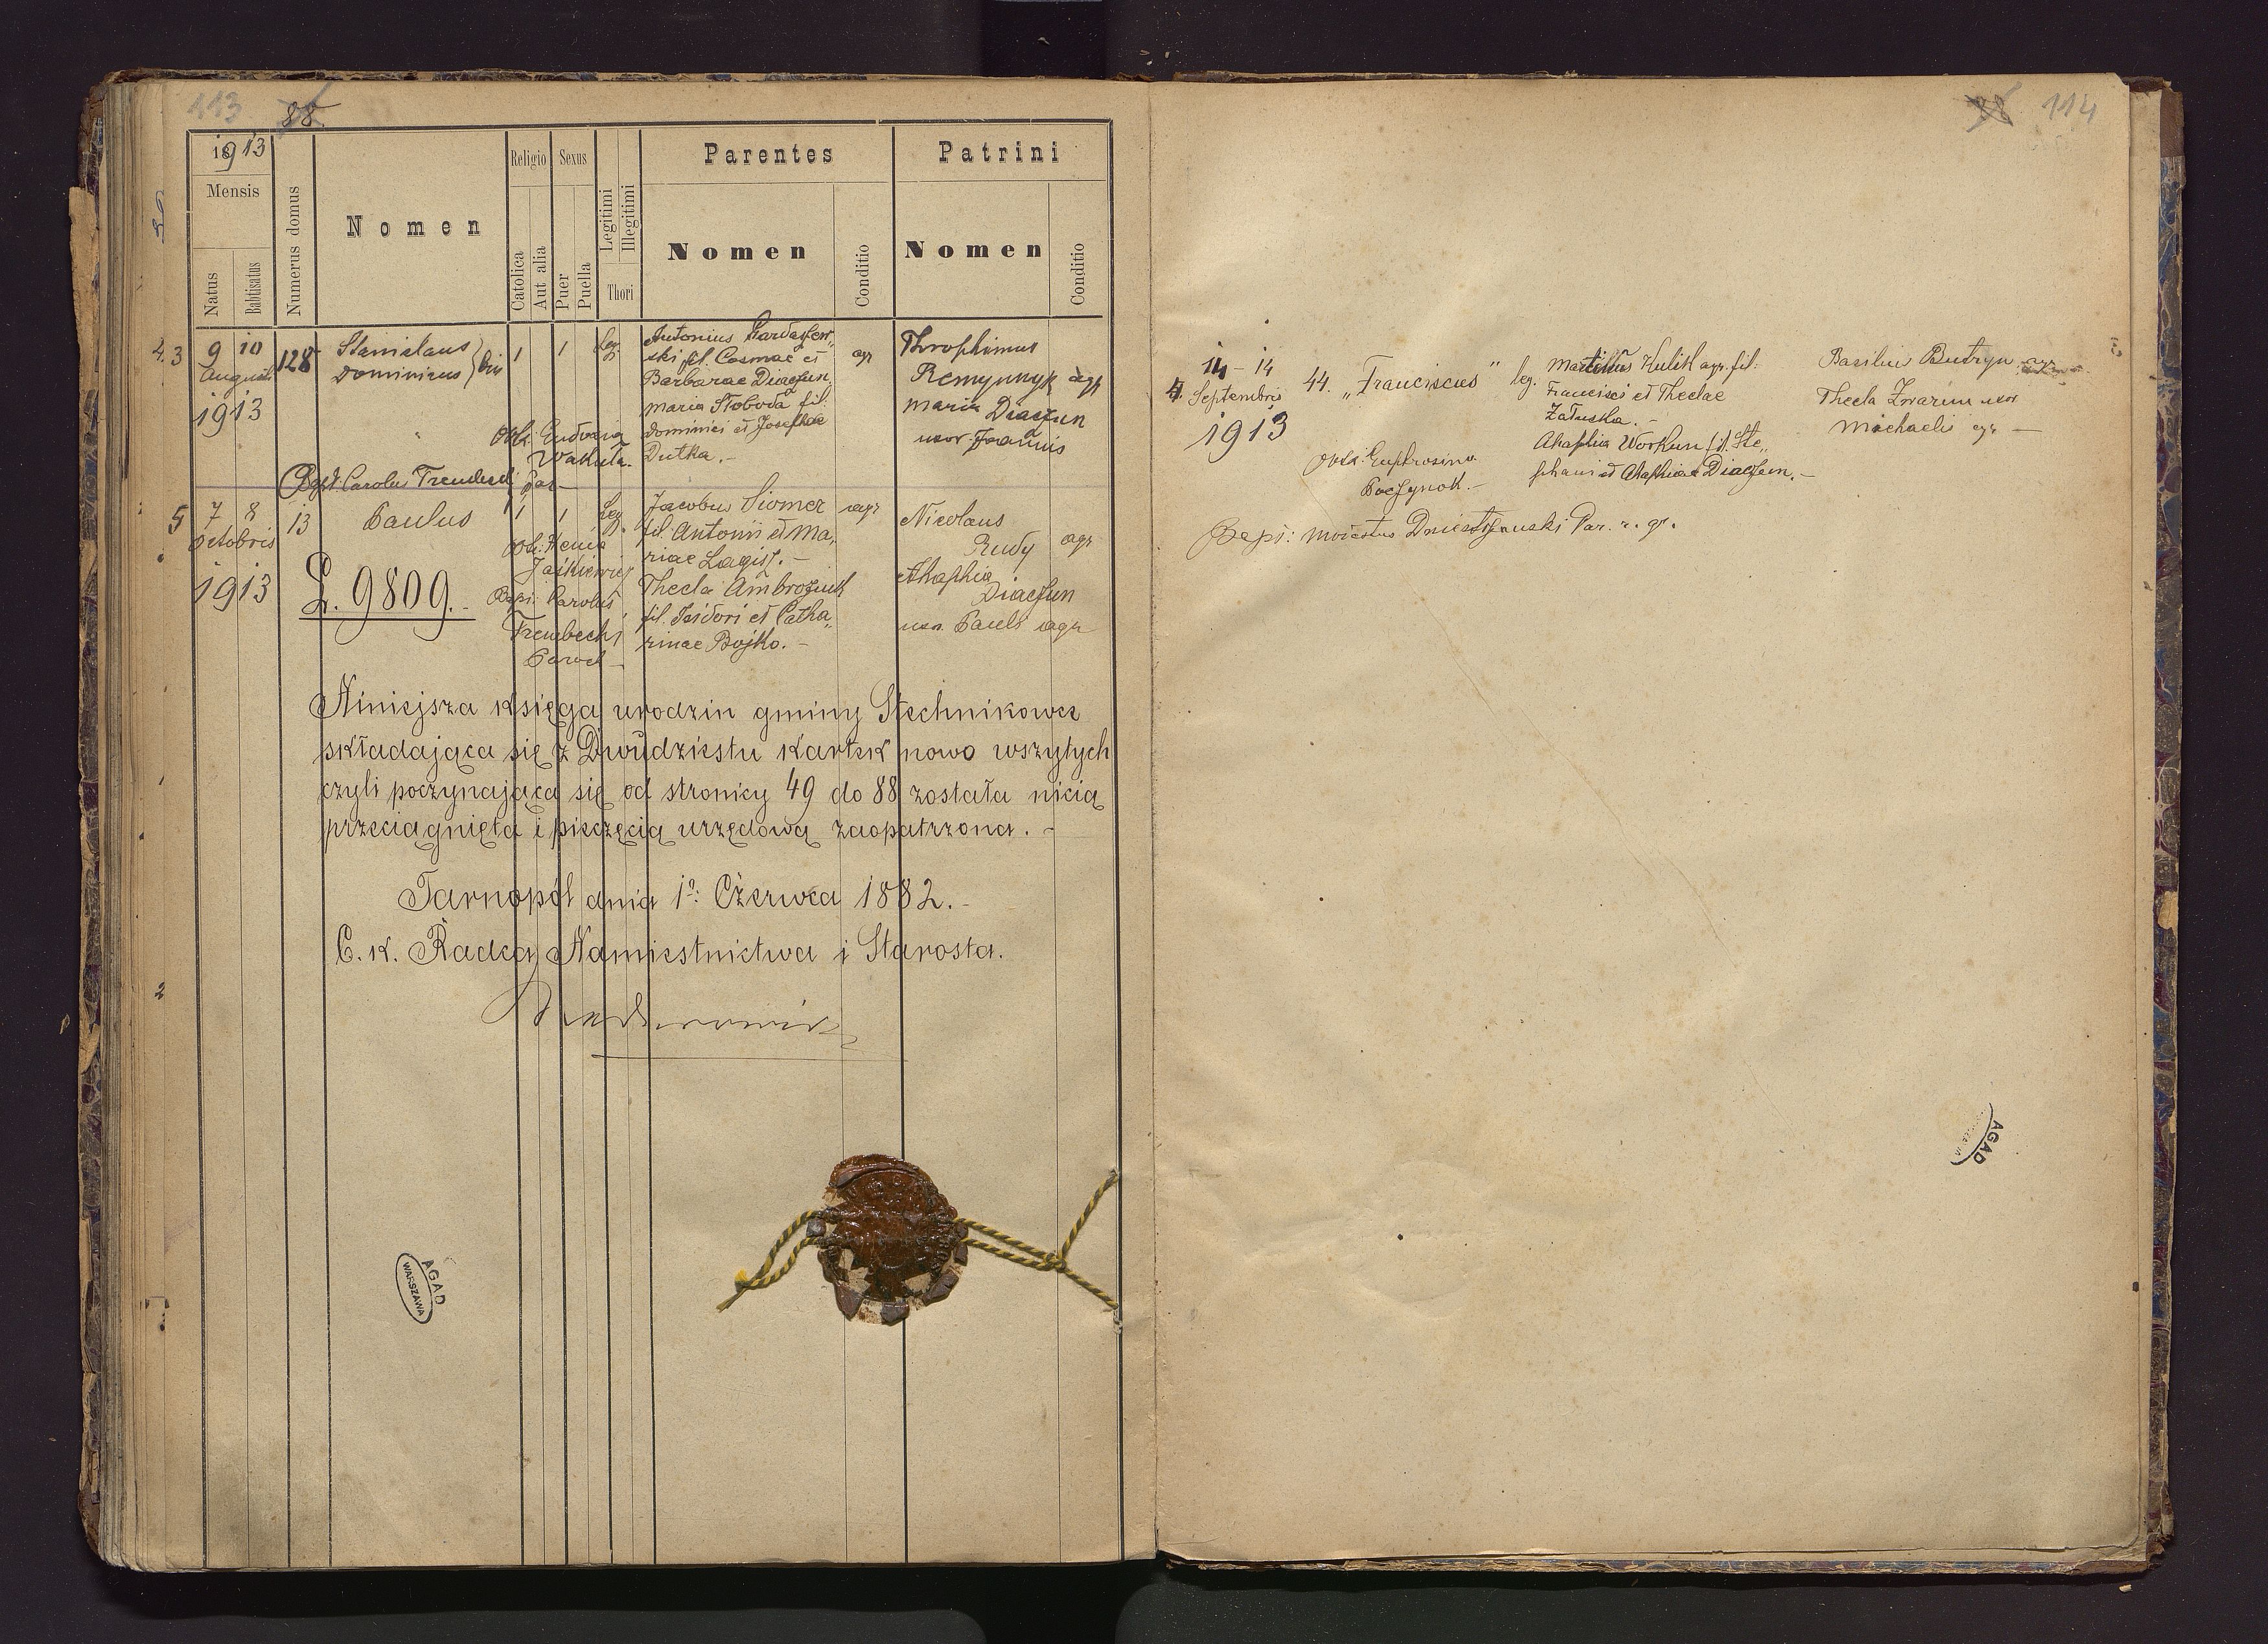 113 88.
1913
Mensis
Natus
Babtisatus
Numerus domus
Nomen
Religio
Catolica
Aut alia
Sexus
Puer
Puella
Legitimi
Illegitimi
Thori
Parentes
Nomen
Conditio
Patrini
Nomen
Conditio
3
9 10
Augusti
1913
128
Stanislaus
Dominicus
1 1 Leg.
Obst. Eudoxia
Wakuta.
Bapt. Carolus
Par
Antonius
ski fil. Cosmae et
Barbarae Diaczun.
Maria Stoboda fil.
Dominici et Josephae
Dutka. -
agr
Throphimus
Remynnyk agr
Maria Diaczun
uxor Joannis
5
7 8
Octobris
1913
13
Paulus
1 1 Leg.
Obst.
Bapt. Carolus
Trembecki
Paroch
Jacobus Siomer
fil. Antonii et Ma,
riae
Thecla Ambroziuk
fil. Isidori et Catha,
rinae Bojko. -
agr
Nicolaus
Rudy agr
Ahaphia
Diaczun
uxor Pauli agr
L. 9809. -
Niniejsza księga urodzin gminy Stechnikowce
składająca się z Dwudziestu kartek nowo wszytych
czyli poczynająca się od stronicy 49 do 88 została nicią
przeciągnięta i pieczęcią urzędową zaopatrzona. -
Tarnopól dnia 1o: Czerwca 1882. -
C. k. Radca Namiestnictwa i Starosta.
AGAD
WARSZAWA
114
4.
14 - 14
Septembris
1913
44. „Franciscus” leg.
Kulik agr. fil.
Francisci et Theclae
Załuska. -
Ahaphia Workun fil. Ste,,
phani et Ahaphiae Diaczun. -
Basilius Butryn
Thecla Zwarun uxor
Michaelis agr -
Obst. Euphrosina
Poczynok. -
Bapt: Par. r. gr.
AGAD